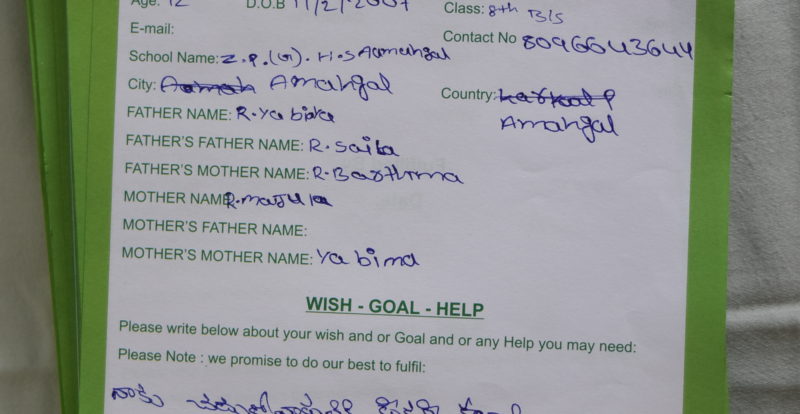 Age: 12 D.O.B 11/2/2007 Class: 8th B/S
E-mail: Contact No 8096643644
School Name: Z.P.(G). H.S Aamangal
City: Amangal Country:
Amangal
FATHER NAME: R.Ya
FATHER'S FATHER NAME: R. Saila
FATHER'S MOTHER NAME: R.
MOTHER NAME
MOTHER'S FATHER NAME:
MOTHER'S MOTHER NAME: Ya bima
WISH - GOAL - HELP
Please write below about your wish and or Goal and or any Help you may need:
Please Note : we promise to do our best to fulfil:
నాకు